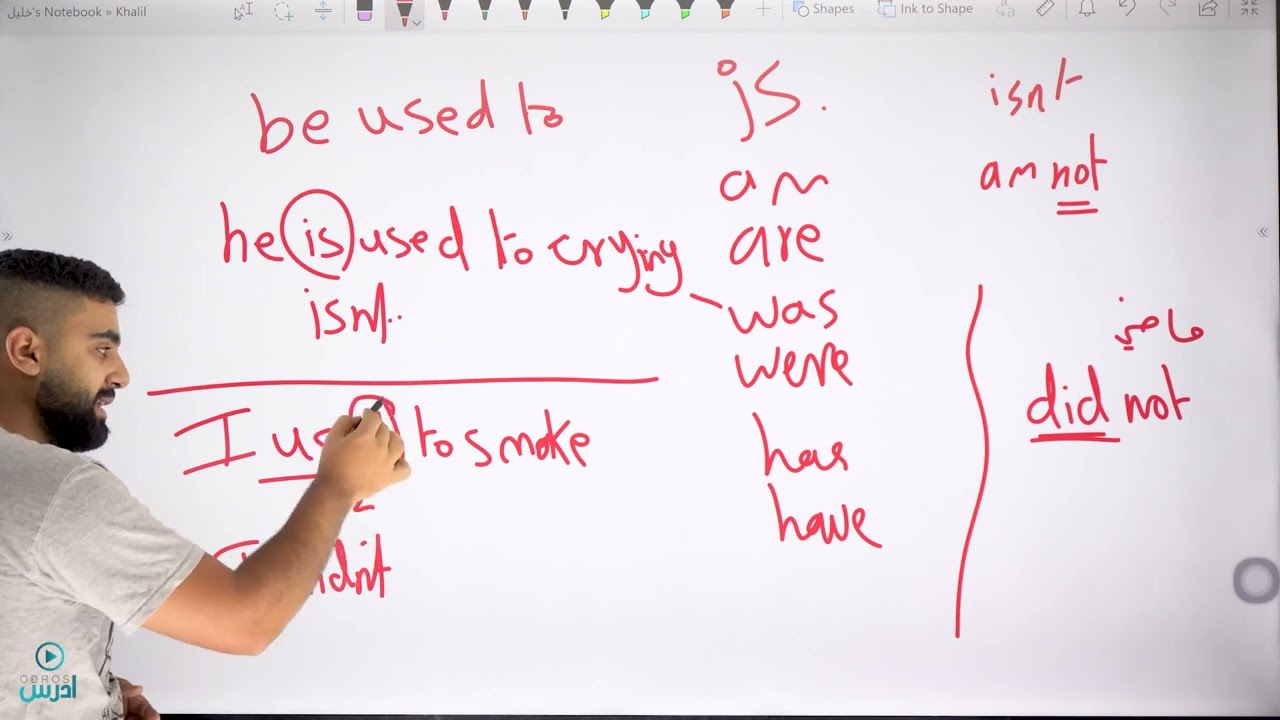 خليل's Notebook » Khalil
Shapes
Ink to Shape
be used to
he is used to crying
isnt..
I used to smoke
I didn't
is.
am
are
was
were
has
have
isnt
am not
ماضي
did not
ODROS
ادرس